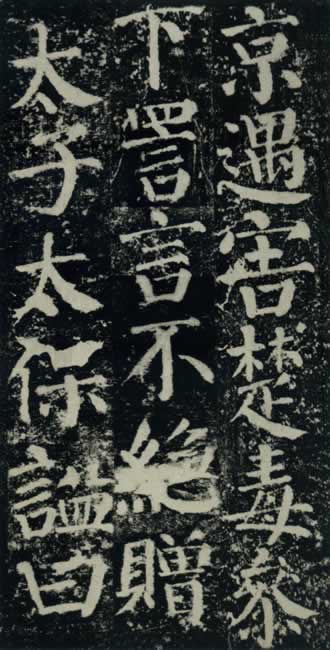 京遇害楚毒參
下詈言不絕贈
太子太保謚曰